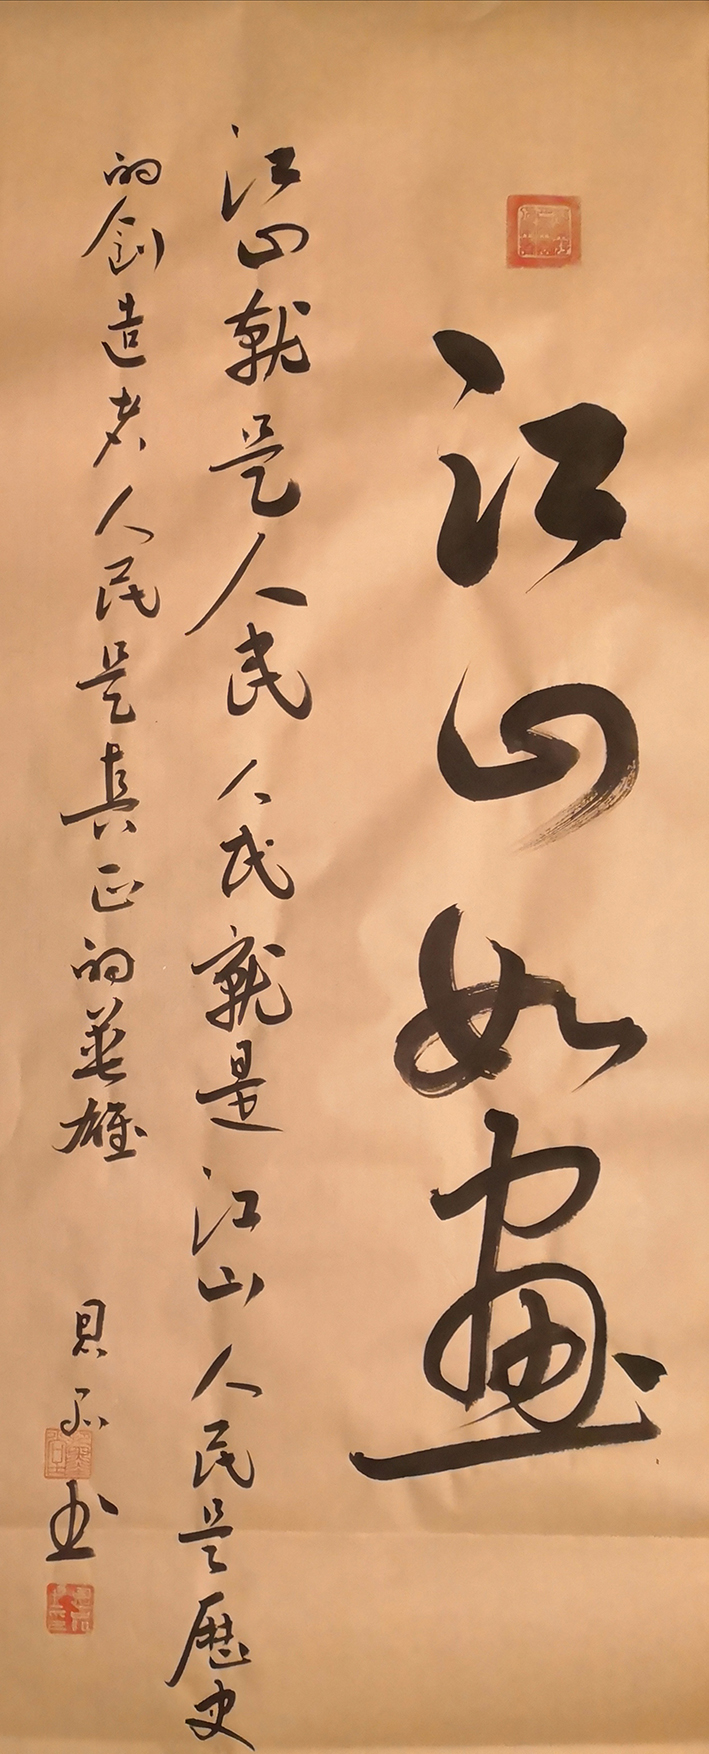 江山如画
江山就是人民人民就是江山人民是歷史
的创造者人民是真正的英雄
书